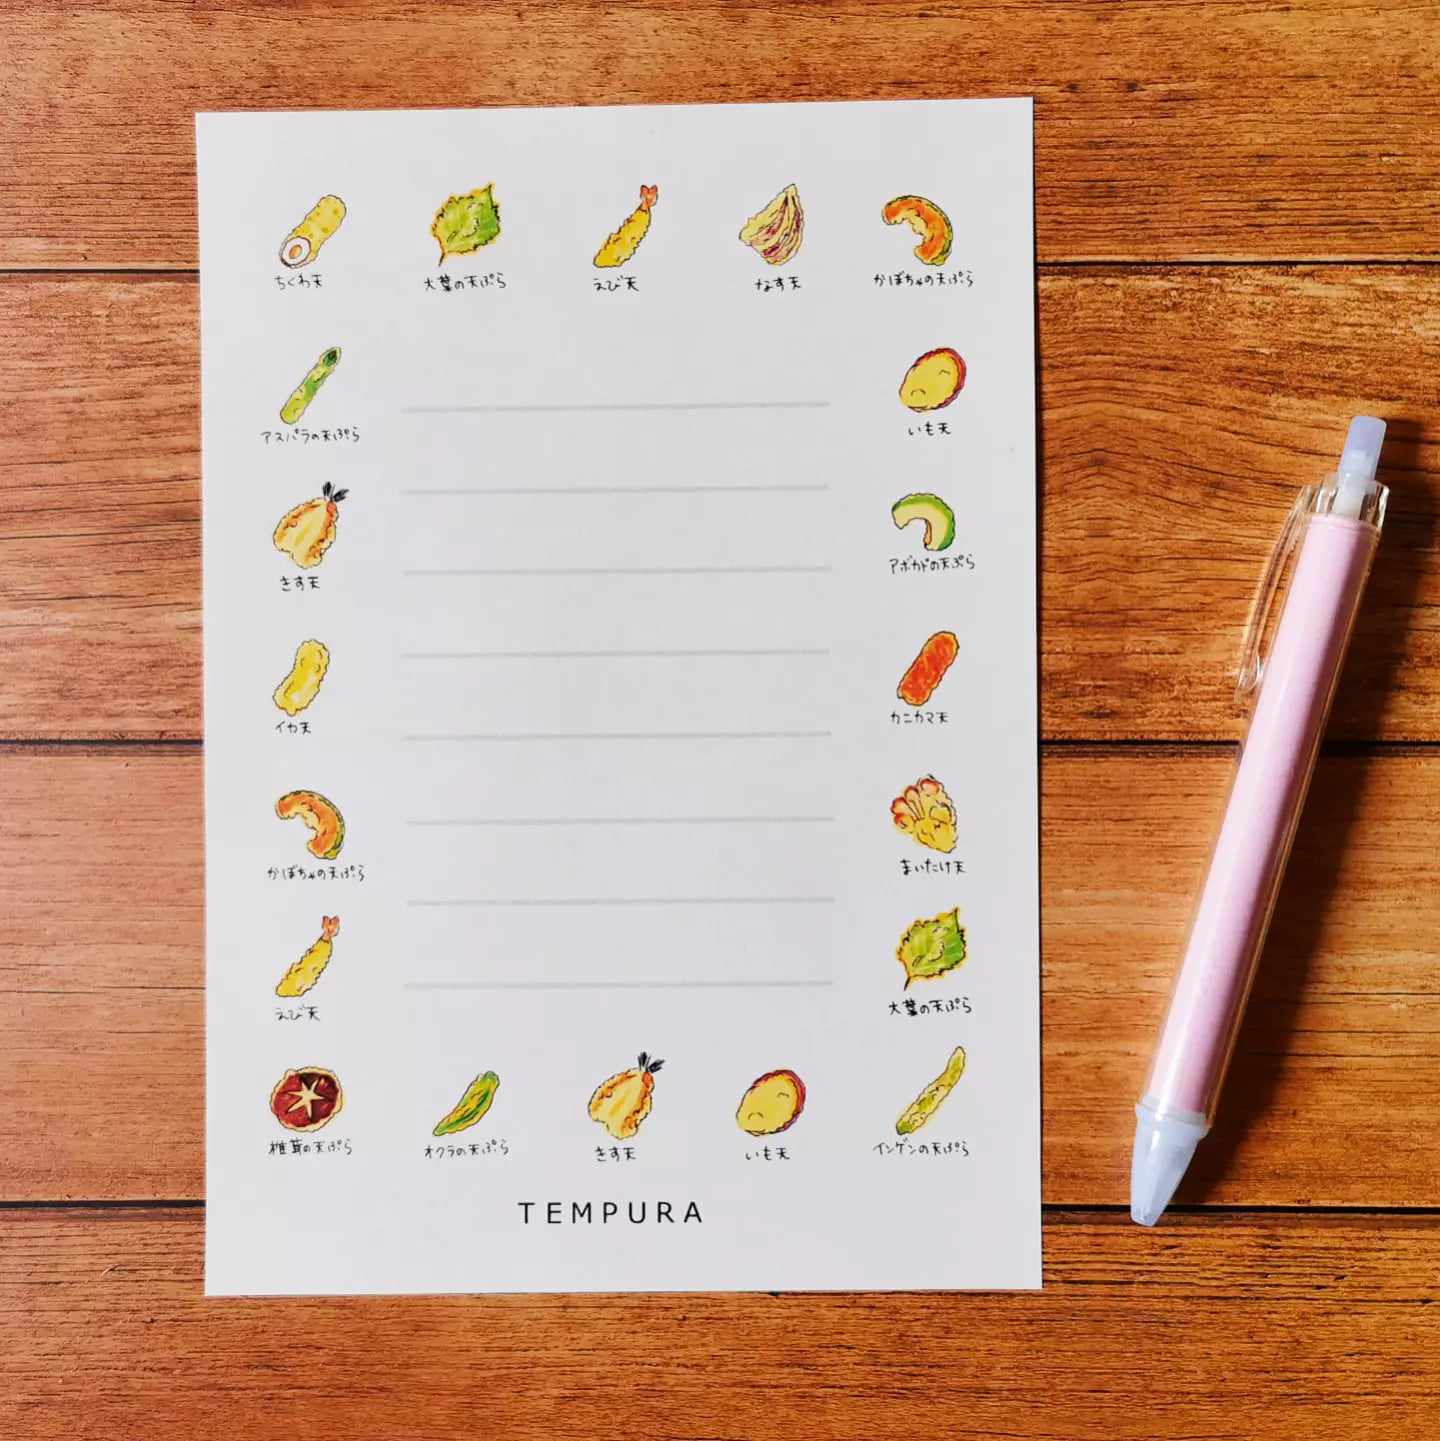 ちくわ天
大葉の天ぷら
えび天
なす天
かぼちゃの天ぷら
アスパラの天ぷら
いも天
きす天
アボカドの天ぷら
イカ天
カニカマ天
かぼちゃの天ぷら
まいたけ天
えび天
大葉の天ぷら
椎茸の天ぷら
オクラの天ぷら
きす天
いも天
インゲンの天ぷら
TEMPURA